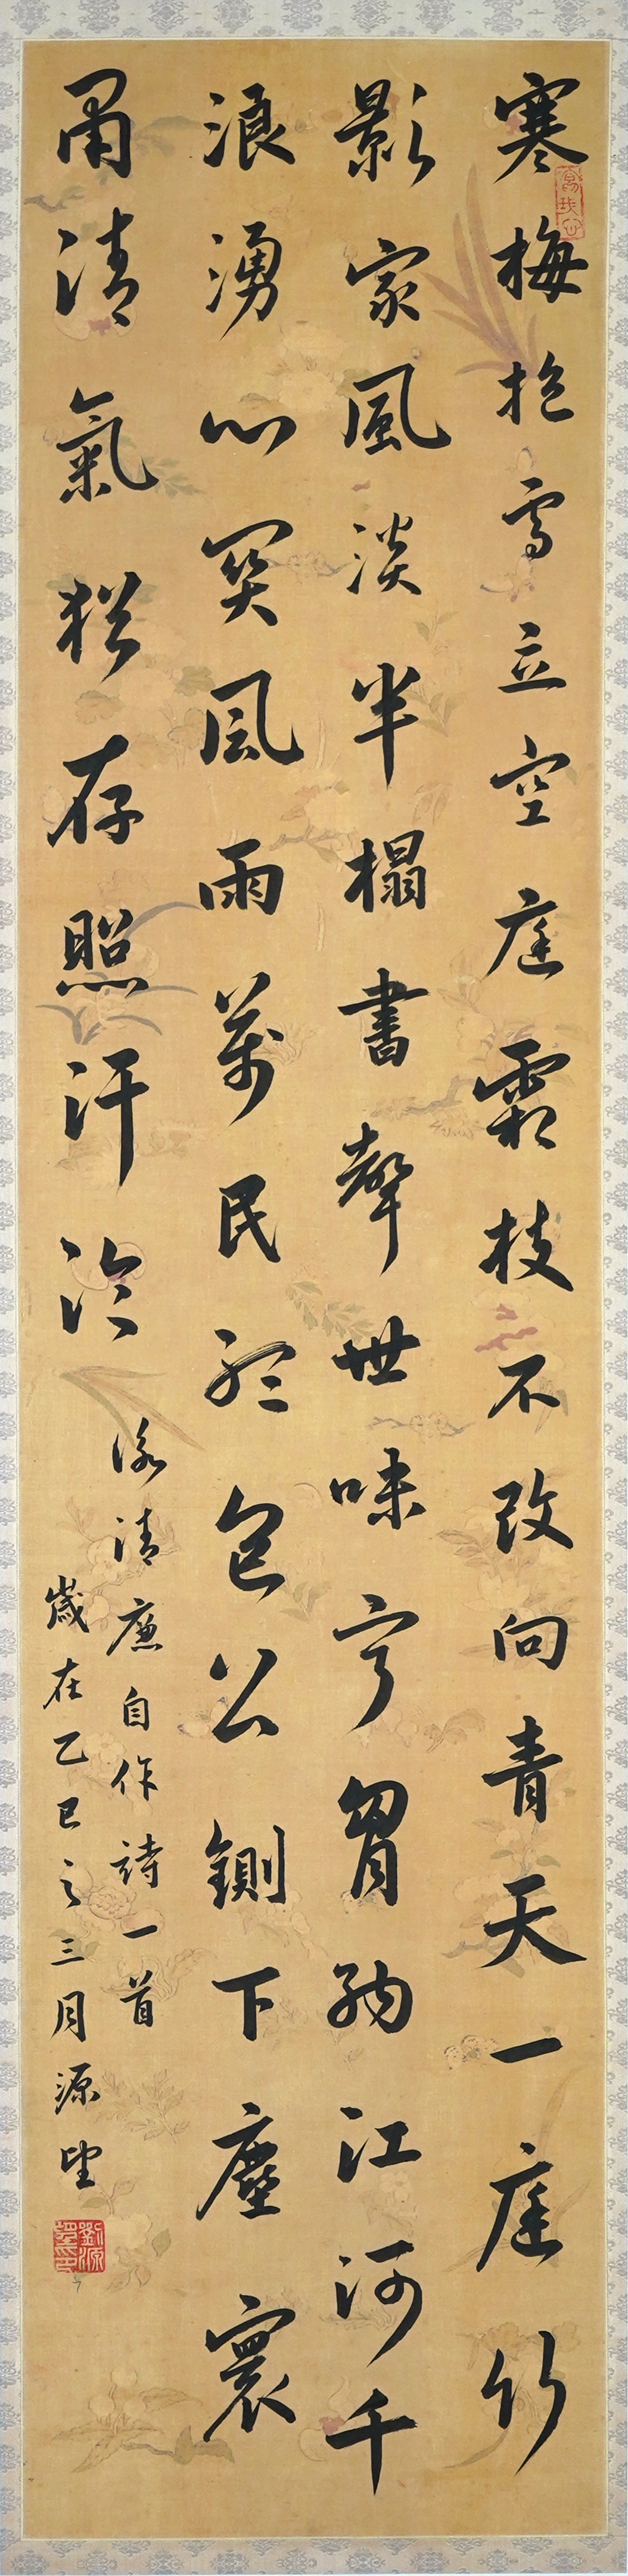 寒梅抱雪立空庭霜枝不改向青天一庭竹
影家風淡半榻書聲世味宁胷納江河千
浪湧心関風雨萬民聽包公鍘下塵寰
肅清氣猶存照汗泠
詠清廉自作詩一首
歲在乙巳之三月源望